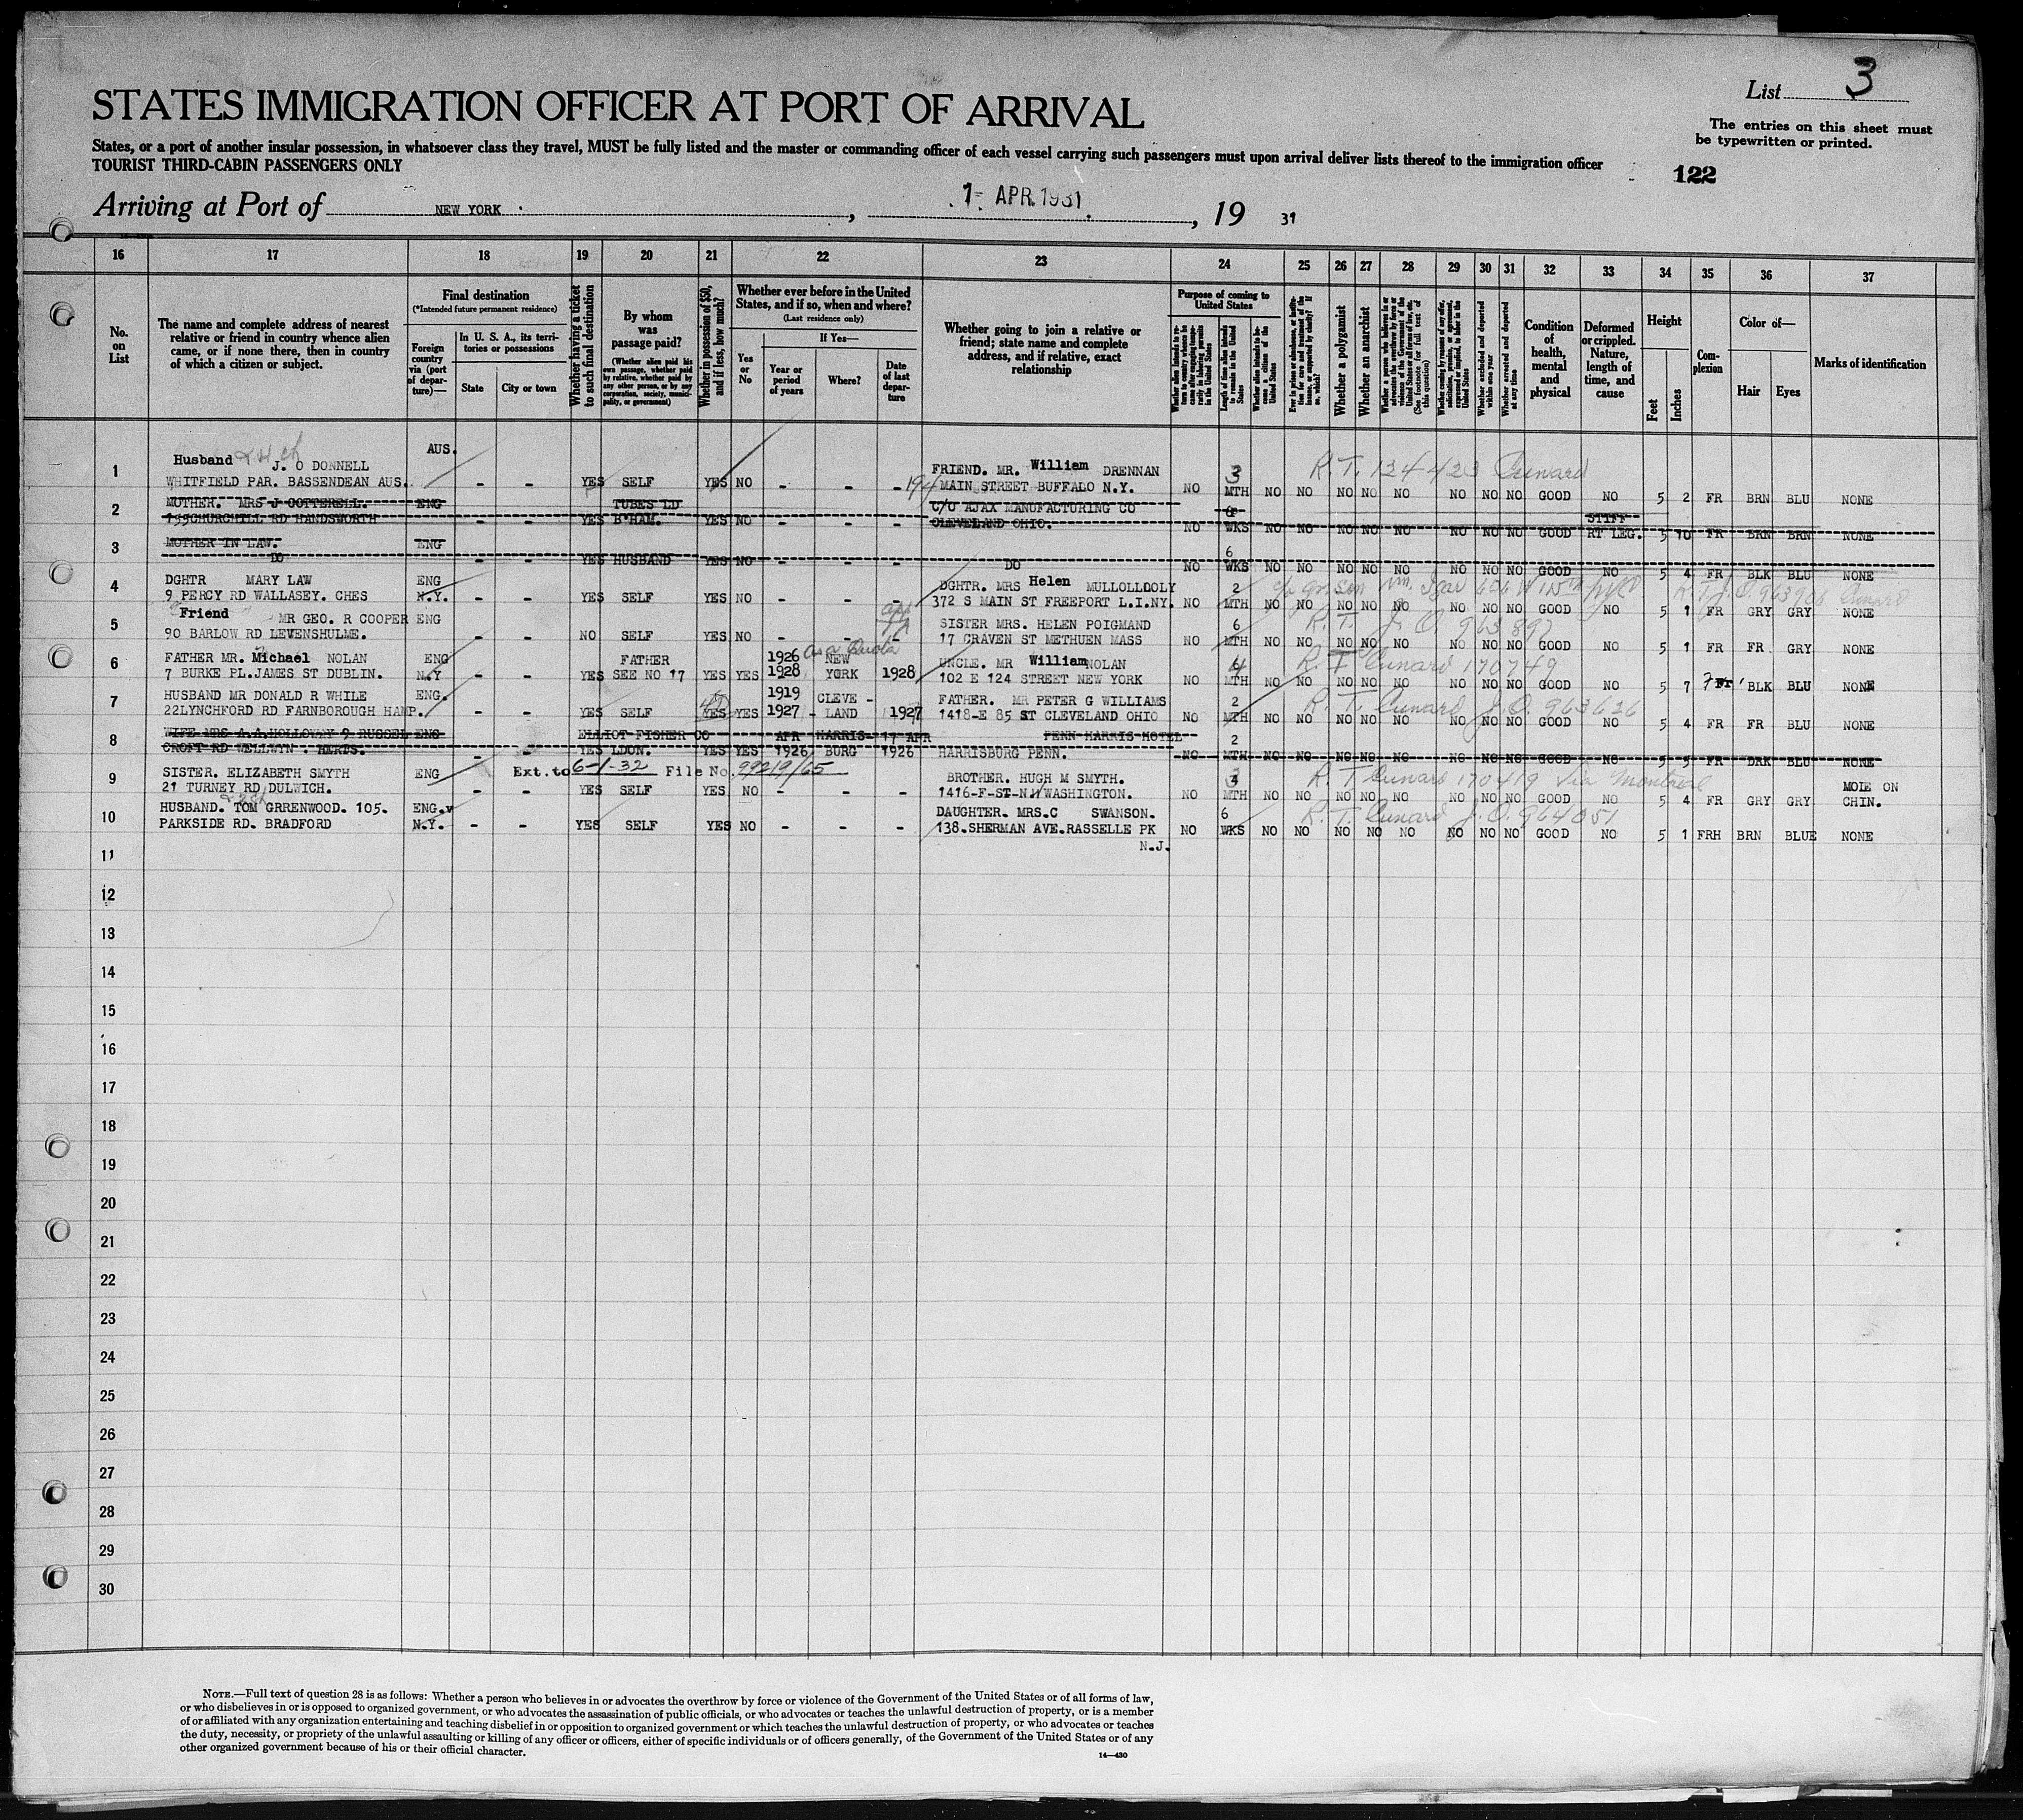 List 3
STATES IMMIGRATION OFFICER AT PORT OF ARRIVAL
The entries on this sheet must
be typewritten or printed.
States, or a port of another insular possession, in whatsoever class they travel, MUST be fully listed and the master or commanding officer of each vessel carrying such passengers must upon arrival deliver lists thereof to the immigration officer
TOURIST THIRD-CABIN PASSENGERS ONLY
122
Arriving at Port of NEW YORK, 7- APR. 1931, 19 31
16 17 18 19 20 21 22 23 24 25 26 27 28 29 30 31 32 33 34 35 36 37
No. on List
The name and complete address of nearest
relative or friend in country whence alien
came, or if none there, then in country
of which a citizen or subject.
Final destination
(*Intended future permanent residence)
Foreign country via (port of departure)—
In U. S. A., its territories or possessions
State
City or town
Whether having a ticket to such final destination
By whom was passage paid?
(Whether alien paid his own passage, whether paid by relative, whether paid by any other person, or by any corporation, society, municipality, or government)
Whether in possession of $50, and if less, how much?
Whether ever before in the United
States, and if so, when and where?
(Last residence only)
Yes or No
If Yes—
Year or period of years
Where?
Date of last departure
Whether going to join a relative or
friend; state name and complete
address, and if relative, exact
relationship
Purpose of coming to United States
Whether a polygamist
Whether an anarchist
Condition of health, mental and physical
Deformed or crippled. Nature, length of time, and cause
Height
Feet
Inches
Complexion
Color of—
Hair
Eyes
Marks of identification
AUS.
1 Husband J. O DONNELL FRIEND. MR. William DRENNAN 3 R.T. 124423 Cunard
WHITFIELD PAR. BASSENDEAN AUS. - - YES SELF YES NO - - - MAIN STREET BUFFALO N.Y. NO MTH NO NO NO NO NO NO NO NO GOOD NO 5 2 FR BRN BLU NONE
2 MOTHER. MRS J COTTERELL. ENG TUBES LD C/O AJAX MANUFACTURING CO 6 STIFF
155CHURCHILL RD HANDSWORTH - - YES B'HAM. YES NO - - - CLEVELAND OHIO. NO WKS NO NO NO NO NO NO NO NO GOOD RT LEG. 5 10 FR BRN BRN NONE
3 MOTHER IN LAW. ENG 6
DO - - YES HUSBAND YES NO - - - DO NO WKS NO NO NO NO NO NO NO NO GOOD NO 5 4 FR BLK BLU NONE
4 DGHTR MARY LAW ENG DGHTR. MRS Helen MULLOLLOOLY 2
9 PERCY RD WALLASEY. CHES N.Y. - - YES SELF YES NO - - - 372 S MAIN ST FREEPORT L.I.NY. NO MTH NO NO NO NO NO NO NO NO GOOD NO 5 1 FR GRY GRY NONE
5 Friend MR GEO. R COOPER ENG SISTER MRS. HELEN POIGMAND 6 R.T. J.O. 963897
90 BARLOW RD LEVENSHULME. - - NO SELF YES NO - - - 17 CRAVEN ST METHUEN MASS NO MTH NO NO NO NO NO NO NO NO GOOD NO 5 1 FR FR GRY NONE
6 FATHER MR. Michael NOLAN ENG FATHER 1926 NEW as a Quota UNCLE. MR William NOLAN R.T. Cunard 170749
7 BURKE PL.JAMES ST DUBLIN. N.Y - - YES SEE NO 17 YES YES 1928 YORK 1928 102 E 124 STREET NEW YORK NO MTH NO NO NO NO NO NO NO NO GOOD NO 5 7 Fr BLK BLU NONE
7 HUSBAND MR DONALD R WHILE ENG. 1919 CLEVE - FATHER. MR PETER G WILLIAMS 2 R.T. Cunard J.O. 963626
22LYNCHFORD RD FARNBOROUGH HAMP. - - YES SELF YES YES 1927 - LAND 1927 1418-E 85 ST CLEVELAND OHIO NO MTH NO NO NO NO NO NO NO NO GOOD NO 5 4 FR FR BLU NONE
8 WIFE MRS A.A.HOLLOWAY 9 RUSSEL ENG ELLIOT FISHER CO APR HARRIS- 17 APR PENN HARRIS HOTEL 2
CROFT RD WELLWYN . HERTS. - - YES LDON. YES YES 1926 BURG 1926 HARRISBURG PENN. NO MTH NO NO NO NO NO NO NO NO GOOD NO 5 5 FR DRK BLU NONE
9 SISTER. ELIZABETH SMYTH ENG Ext. to 6-1-32 File No. 99219/65 BROTHER. HUGH M SMYTH. R.T Cunard 170419 via Montreal MOLE ON
21 TURNEY RD DULWICH. - - YES SELF YES NO - - - 1416-F-ST-N.W WASHINGTON. NO MTH NO NO NO NO NO NO NO NO GOOD NO 5 4 FR GRY GRY CHIN.
10 HUSBAND. TOM GRREENWOOD. 105. ENG.v DAUGHTER. MRS.C SWANSON. 6 R.T. Cunard J.O. 964051
PARKSIDE RD. BRADFORD N.Y. - - YES SELF YES NO - - - 138.SHERMAN AVE.RASSELLE PK NO WKS NO NO NO NO NO NO NO NO GOOD NO 5 1 FRH BRN BLUE NONE
N.J.
11
12
13
14
15
16
17
18
19
20
21
22
23
24
25
26
27
28
29
30
NOTE.—Full text of question 28 is as follows: Whether a person who believes in or advocates the overthrow by force or violence of the Government of the United States or of all forms of law,
or who disbelieves in or is opposed to organized government, or who advocates the assassination of public officials, or who advocates or teaches the unlawful destruction of property, or is a member
of or affiliated with any organization entertaining and teaching disbelief in or opposition to organized government or which teaches the unlawful destruction of property, or who advocates or teaches
the duty, necessity, or propriety of the unlawful assaulting or killing of any officer or officers, either of specific individuals or of officers generally, of the Government of the United States or of any
other organized government because of his or their official character.
14—430